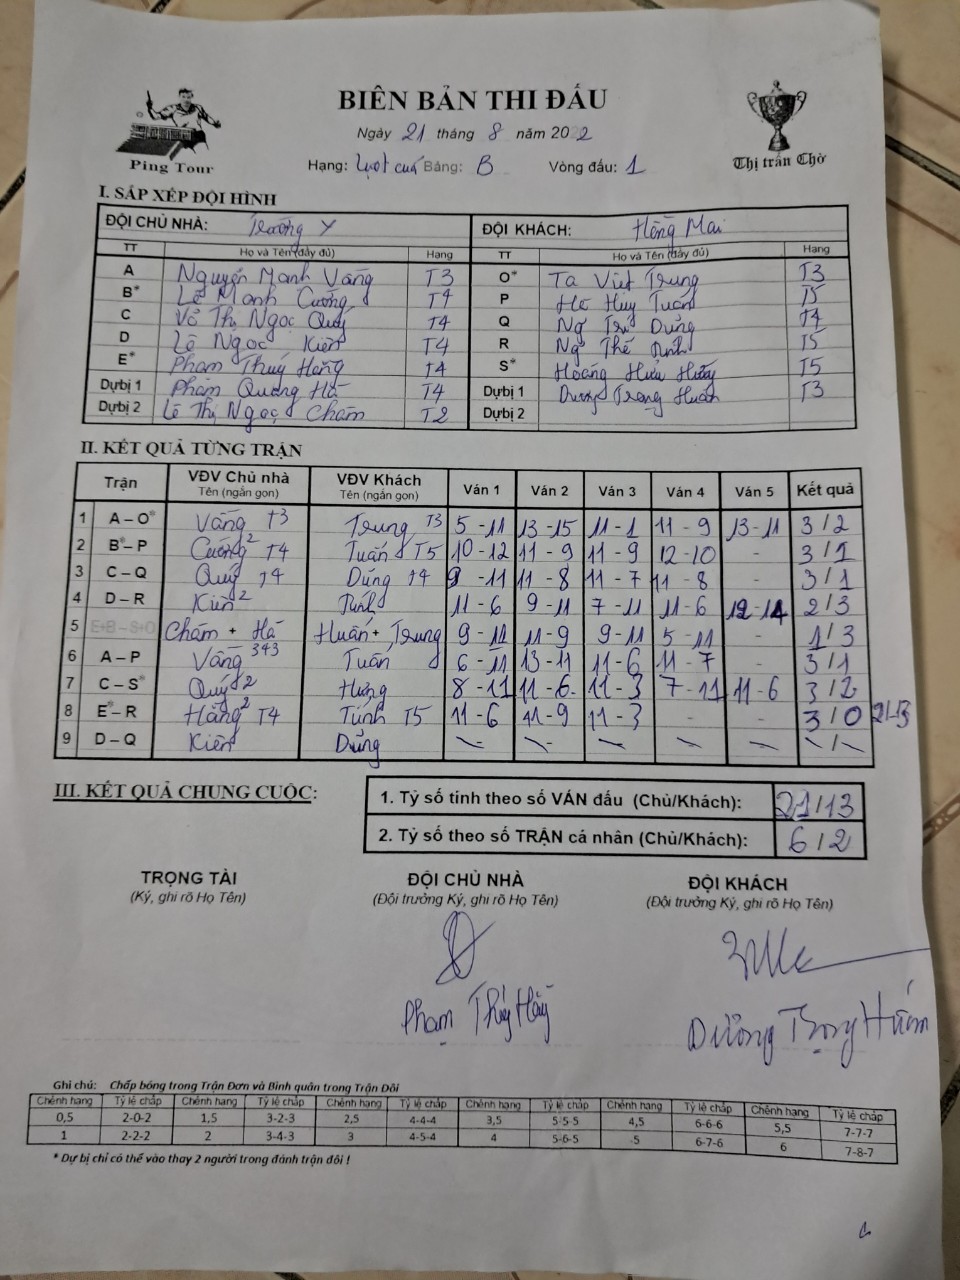 BIÊN BẢN THI ĐẤU
Ngày 21 tháng 8 năm 2022
Ping Tour
Hạng: Lượt cuối Bảng: B Vòng đấu: 1
Thị trấn Chờ
I. SẮP XẾP ĐỘI HÌNH
ĐỘI CHỦ NHÀ: Trường Y ĐỘI KHÁCH: Hồng Mai
TT Họ và Tên (đầy đủ) Hạng TT Họ và Tên (đầy đủ) Hạng
A Nguyễn Mạnh Vàng T3 O* Tạ Việt Trung T3
B* Lê Mạnh Cường T4 P Hà Huy Tuấn T5
C Võ Thị Ngọc Quý T4 Q Ng Trí Dũng T4
D Lê Ngọc Kiên T4 R Ng Thế T5
E* Phạm Thúy Hằng T4 S* Hoàng Hữu T5
Dự bị 1 Phạm Quang Hà T4 Dự bị 1 Dương Trọng Huấn T3
Dự bị 2 Lê Thị Ngọc Châm T2 Dự bị 2
II. KẾT QUẢ TỪNG TRẬN
Trận VĐV Chủ nhà Tên (ngắn gọn) VĐV Khách Tên (ngắn gọn) Ván 1 Ván 2 Ván 3 Ván 4 Ván 5 Kết quả
1 A – O* Vàng T3 Trung T3 5 - 11 13 - 15 11 - 1 11 - 9 13 - 11 3 / 2
2 B* – P Cường 2 T4 Tuấn T5 10 - 12 11 - 9 11 - 9 12 - 10 - 3 / 1
3 C – Q Quý T4 Dũng T4 9 - 11 11 - 8 11 - 7 11 - 8 - 3 / 1
4 D – R Kiên 2 11 - 6 9 - 11 7 - 11 11 - 6 12 - 14 2 / 3
5 E+B – S+O Châm + Hà Huấn + Trung 9 - 11 11 - 9 9 - 11 5 - 11 - 1 / 3
6 A – P Vàng 343 Tuấn 6 - 11 13 - 11 11 - 6 11 - 7 - 3 / 1
7 C – S* Quý 2 Hưng 8 - 11 11 - 6 11 - 3 7 - 11 11 - 6 3 / 2
8 E* – R Hằng 2 T4 T5 11 - 6 11 - 9 11 - 3 - - 3 / 0 21-13
9 D – Q Kiên Dũng - - - - - - / -
III. KẾT QUẢ CHUNG CUỘC:
1. Tỷ số tính theo số VÁN đấu (Chủ/Khách): 21 / 13
2. Tỷ số theo số TRẬN cá nhân (Chủ/Khách): 6 / 2
TRỌNG TÀI ĐỘI CHỦ NHÀ ĐỘI KHÁCH
(Ký, ghi rõ Họ Tên) (Đội trưởng Ký, ghi rõ Họ Tên) (Đội trưởng Ký, ghi rõ Họ Tên)
Phạm Thúy Hằng Dương Trọng Huấn
Ghi chú: Chấp bóng trong Trận Đơn và Bình quân trong Trận Đôi
Chênh hạng Tỷ lệ chấp Chênh hạng Tỷ lệ chấp Chênh hạng Tỷ lệ chấp Chênh hạng Tỷ lệ chấp Chênh hạng Tỷ lệ chấp Chênh hạng Tỷ lệ chấp
0,5 2-0-2 1,5 3-2-3 2,5 4-4-4 3,5 5-5-5 4,5 6-6-6 5,5 7-7-7
1 2-2-2 2 3-4-3 3 4-5-4 4 5-6-5 5 6-7-6 6 7-8-7
* Dự bị chỉ có thể vào thay 2 người trong đánh trận đôi !